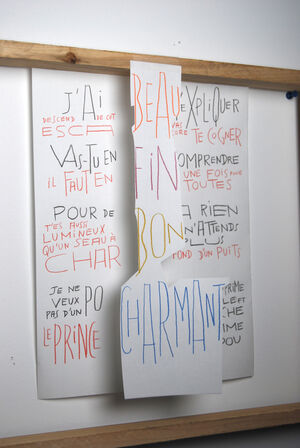 J'AI
DESCEND DE CET
ESCA
VAS-TU EN
IL FAUT EN
POUR DE
T'ES AUSSI
LUMINEUX
QU'UN SEAU À
CHAR
JE NE
VEUX PO
PAS D'UN
LE PRINCE
BEAU
FIN
BON
CHARMANT
EXPLIQUER
TE COGNER
COMPRENDRE
UNE FOIS POUR
TOUTES
À RIEN
N'ATTENDS
PLUS
FOND D'UN PUITS
PRIME
LE ET
CHE
IME
OU